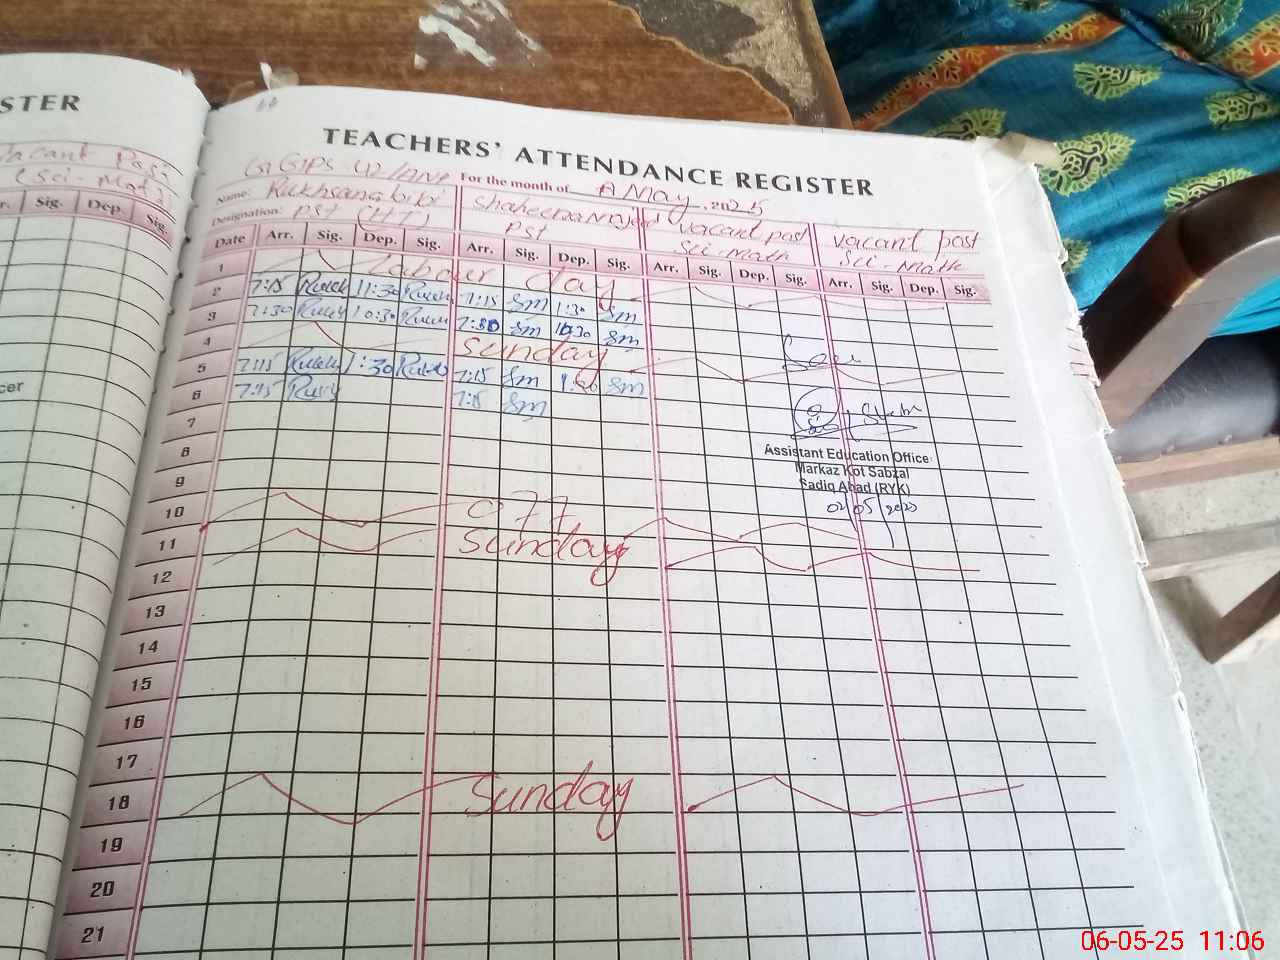 STER
Vacant Post
(Sci-Math)
r. Sig. Dep. Sig.
cer
TEACHERS' ATTENDANCE REGISTER
For the month of May 2025
Name: Rukhsana bibi Shaheena Majeed vacant post vacant post
Designation: PST (HT) PST Sci-Math Sci-Math
Date Arr. Sig. Dep. Sig. Arr. Sig. Dep. Sig. Arr. Sig. Dep. Sig. Arr. Sig. Dep. Sig.
1 Labour day
2 7:15 11:30 7:15 Sm 1:30 Sm
3 7:30 10:30 7:30 Sm 10:30 Sm
4 Sunday
5 7:15 1:30 7:15 Sm 1:30 Sm
6 7:15 7:15 Sm
7
8
9
10 off
11 Sunday
12
13
14
15
16
17
18 Sunday
19
20
21
Assistant Education Office
Markaz Kot Sabzal
Sadiq Abad (RYK)
06-05-25 11:06